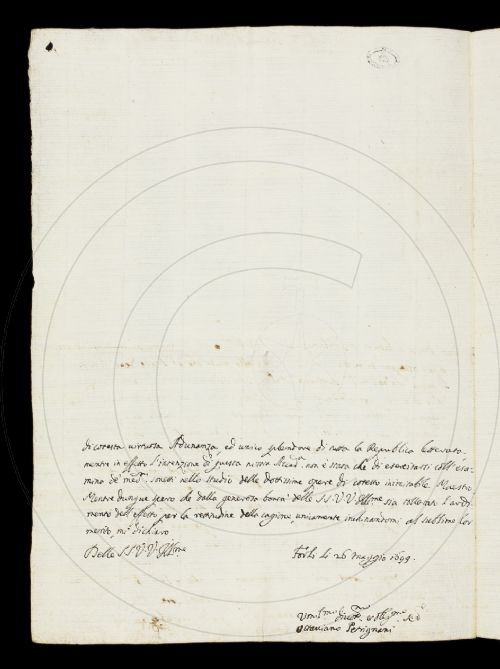 di cotesta virtuosa Adunanza, ed unico splendore di tutta la Republica Letterata,
mentre in effetto l'intenzione di questa nostra Accad.ª non è stata che di esercitarsi coll' esa-
mino de' med.mi nello studio delle dottissime opere di cotesto inimitabile Maestro
Mentre dunque spero che dalla generosa bontà delle SS.VV.Ill.me sia l'ardi-
mento dell' effetto per la rettitudine della cagione, unicamente inchinandomi al sublime lor
merito, mi dichiaro
Delle SS.VV.Ill.me
Forlì li 26 Maggio 1699.
Devot.mo et oblig.mo
Ottaviano Petrignani